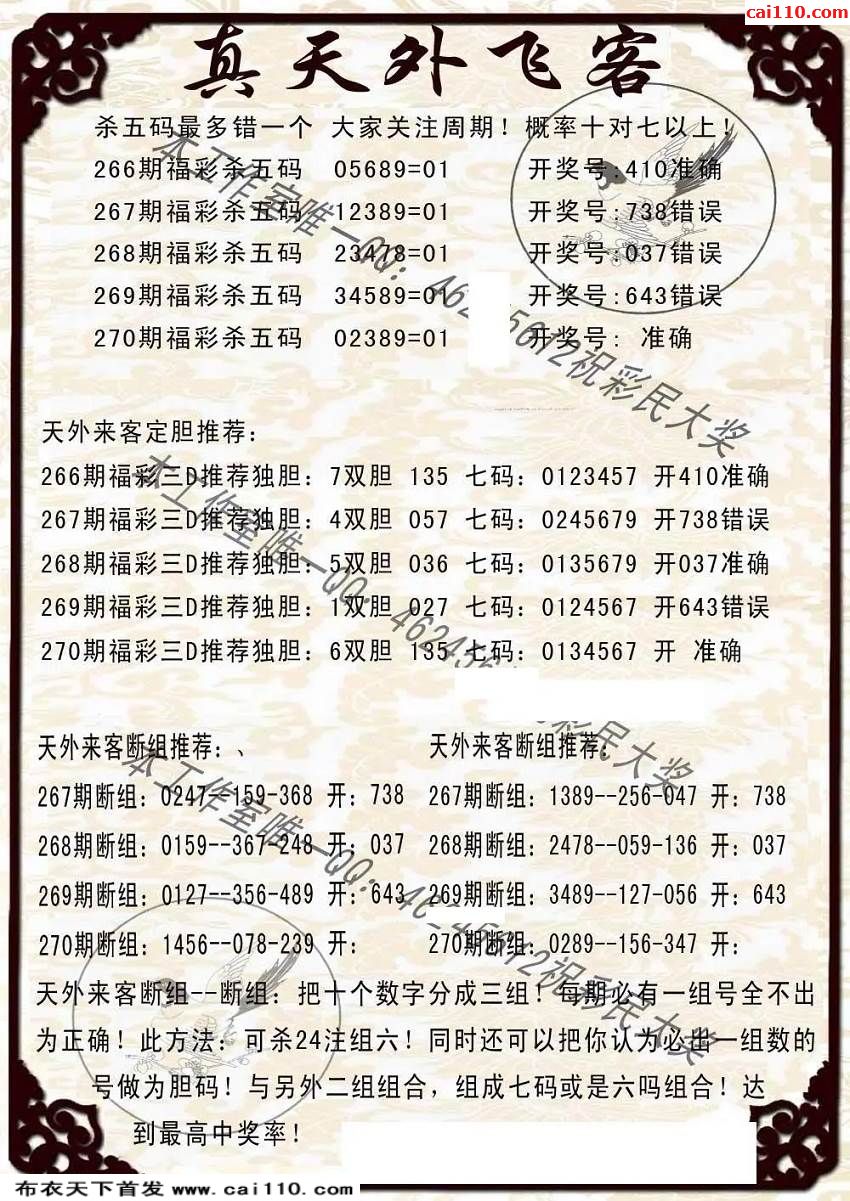 cai110.com
真天外飞客
杀五码最多错一个 大家关注周期！概率十对七以上！
266期福彩杀五码 05689=01 开奖号:410准确
267期福彩杀五码 12389=01 开奖号:738错误
268期福彩杀五码 23478=01 开奖号:037错误
269期福彩杀五码 34589=01 开奖号:643错误
270期福彩杀五码 02389=01 开奖号: 准确
天外来客定胆推荐：
266期福彩三D推荐独胆：7双胆 135 七码：0123457 开410准确
267期福彩三D推荐独胆：4双胆 057 七码：0245679 开738错误
268期福彩三D推荐独胆：5双胆 036 七码：0135679 开037准确
269期福彩三D推荐独胆：1双胆 027 七码：0124567 开643错误
270期福彩三D推荐独胆：6双胆 135 七码：0134567 开 准确
天外来客断组推荐：、
267期断组：0247--159-368 开：738
268期断组：0159--367-248 开：037
269期断组：0127--356-489 开：643
270期断组：1456--078-239 开：
天外来客断组推荐：
267期断组：1389--256-047 开：738
268期断组：2478--059-136 开：037
269期断组：3489--127-056 开：643
270期断组：0289--156-347 开：
天外来客断组--断组：把十个数字分成三组！每期必有一组号全不出
为正确！此方法：可杀24注组六！同时还可以把你认为必出一组数的
号做为胆码！与另外二组组合，组成七码或是六吗组合！达
到最高中奖率！
本工作室唯一QQ：祝彩民大奖
本工作室唯一QQ：彩民大奖
本工作室唯一QQ：祝彩民大奖
布衣天下首发 www.cai110.com